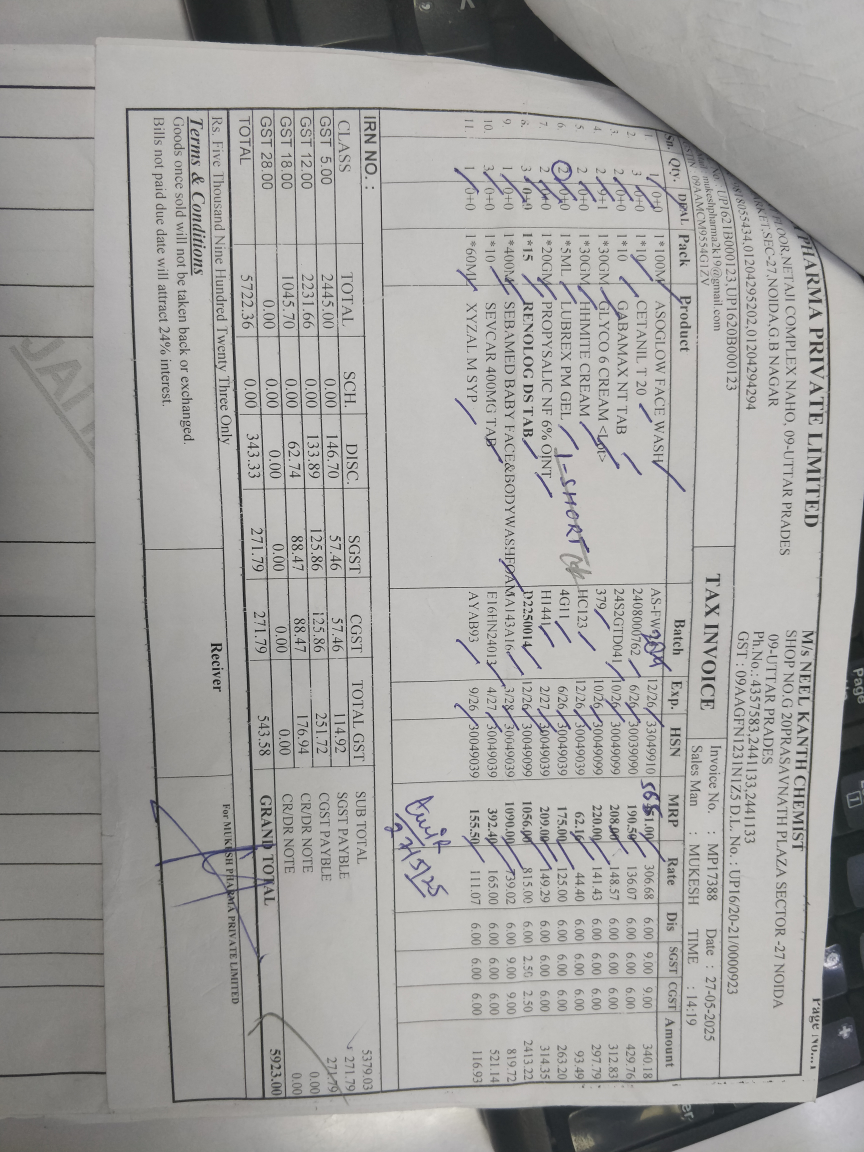 PHARMA PRIVATE LIMITED
FLOOR,NETAJI COMPLEX NAHO, 09-UTTAR PRADES
SEC-27,NOIDA,G.B NAGAR
01204295202,01204294294
UP1621B000123,UP1620B000123
mukeshpharma2k19@gmail.com
09AAMCM9554G1ZV
Page No...1
M/s NEEL KANTH CHEMIST
SHOP NO.G 20PRASAVNATH PLAZA SECTOR -27 NOIDA
09-UTTAR PRADES
Ph.No.: 4357583,2441133,2441133
GST : 09AAGFN1231N1Z5 D.L. No. : UP16/20-21/0000923
TAX INVOICE
Invoice No. : MP17388 Date : 27-05-2025
Sales Man : MUKESH TIME : 14:19
Sn. Qty. DEAL Pack Product Batch Exp. HSN MRP Rate Dis SGST CGST Amount
1. 1 0+0 1*100M ASOGLOW FACE WASH AS-FW 12/26 33049910 306.68 6.00 9.00 9.00 340.18
2. 3 0+0 1*10 CETANIL T 20 2408000762 6/26 30039090 190.50 136.07 6.00 6.00 6.00 429.76
3. 2 0+0 1*10 GABAMAX NT TAB 24S2GTD041 10/26 30049099 208.00 148.57 6.00 6.00 6.00 312.83
4. 2 9+1 1*30GM GLYCO 6 CREAM <Lot> 379 10/26 30049099 220.00 141.43 6.00 6.00 6.00 297.79
5. 2 0+0 1*30GM HHMITE CREAM HC123 12/26 30049039 62.16 44.40 6.00 6.00 6.00 93.49
6. 2 0+0 1*5ML LUBREX PM GEL 1-SHORT 4G11 6/26 30049039 175.00 125.00 6.00 6.00 6.00 263.20
7. 2 0+0 1*20GM PROPYSALIC NF 6% OINT H1441 2/27 30049039 209.00 149.29 6.00 6.00 6.00 314.35
8. 3 0+0 1*15 RENOLOG DS TAB D2250014 12/26 30049099 1056.00 815.00 6.00 2.50 2.50 2413.22
9. 1 0+0 1*400M SEBAMED BABY FACE&BODYWASHFOAM A143A16 3/28 30049039 1090.00 739.02 6.00 9.00 9.00 819.72
10. 3 0+0 1*10 SEVCAR 400MG TAB E16HN24013 4/27 30049039 392.40 165.00 6.00 6.00 6.00 521.14
11. 1 0+0 1*60ML XYZAL M SYP AYAB95 9/26 30049039 155.50 111.07 6.00 6.00 6.00 116.93
27/5/25
IRN NO. :
CLASS TOTAL SCH. DISC. SGST CGST TOTAL GST
GST 5.00 2445.00 0.00 146.70 57.46 57.46 114.92
GST 12.00 2231.66 0.00 133.89 125.86 125.86 251.72
GST 18.00 1045.70 0.00 62.74 88.47 88.47 176.94
GST 28.00 0.00 0.00 0.00 0.00 0.00 0.00
TOTAL 5722.36 0.00 343.33 271.79 271.79 543.58
SUB TOTAL 5379.03
SGST PAYBLE 271.79
CGST PAYBLE 271.79
CR/DR NOTE 0.00
CR/DR NOTE 0.00
GRAND TOTAL 5923.00
Rs. Five Thousand Nine Hundred Twenty Three Only
Terms & Conditions
Goods once sold will not be taken back or exchanged.
Bills not paid due date will attract 24% interest.
Reciver
For MUKESH PHARMA PRIVATE LIMITED
Page